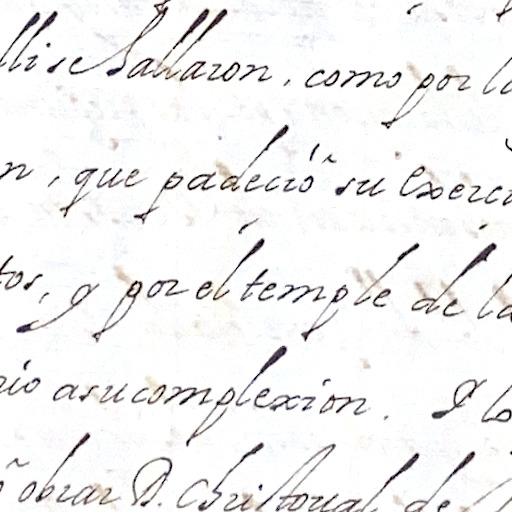 lli se hallaron, como por la
n, que padeció su exerci
tos, y por el temple de la
rio asu complexion. Y lo
obrar D. Christoual de